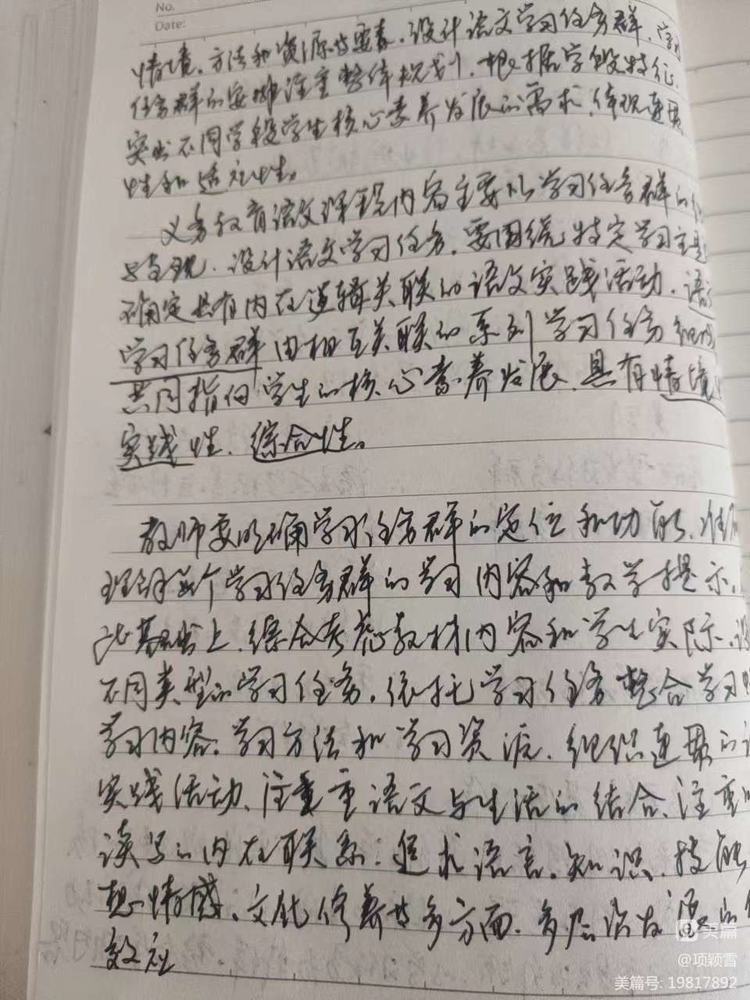 No.
Date:
情境、方法和资源等要素,设计语文学习任务群,学习
任务群的安排注重整体规划,根据学段特征,
突出不同学段学生核心素养发展的需求,体现连贯
性和适应性。
义务教育语文课程内容主要以学习任务群的组
呈现。设计语文学习任务,要围绕特定学习主题
确定具有内在逻辑关联的语文实践活动。语文
学习任务群由相互关联的系列学习任务组成
共同指向学生的核心素养发展,具有情境性
实践性、综合性。
教师要明确学习任务群的定位和功能,准
理解每个学习任务群的学习内容和教学提示。
此基础上,综合考虑教材内容和学生实际,设
不同类型的学习任务,依托学习任务整合学习
学习内容、学习方法和学习资源,组织连贯的语
实践活动,注重语文与生活的结合,注重
读写的内在联系;追求语言、知识、技能
想情感、文化修养等多方面、多层次发展的
效应
美篇
@项颖雪
美篇号: 19817892